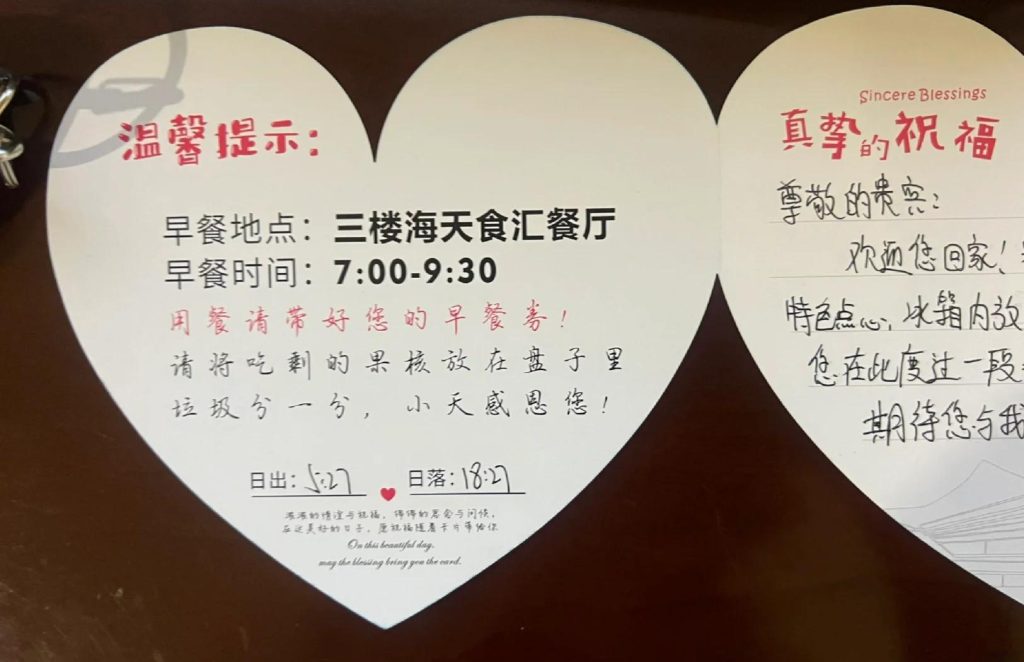 温馨提示：
早餐地点：三楼海天食汇餐厅
早餐时间：7:00-9:30
用餐请带好您的早餐券！
请将吃剩的果核放在盘子里
垃圾分一分，小天感恩您！
日出：5:27 日落：18:27
浓浓的情谊与祝福，绵绵的思念与问候，
在这美好的日子，愿祝福随着卡片带给你
On this beautiful day,
may the blessing bring you the card.
Sincere Blessings
真挚的祝福
尊敬的贵宾：
欢迎您回家！
特色点心，冰箱内放
您在此度过一段
期待您与我